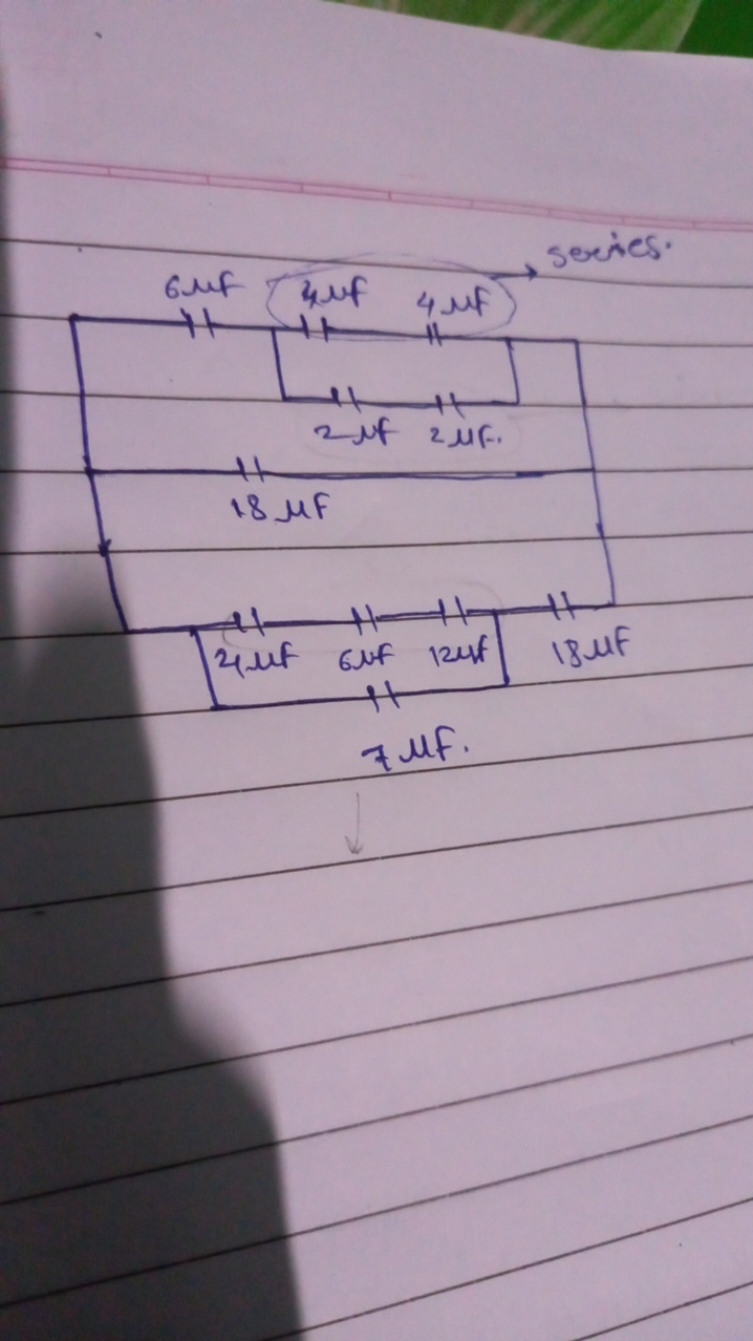 series.
6 µF 4 µF 4 µF
2 µF 2 µF.
18 µF
6 µF 12 µF 18 µF
7 µF.